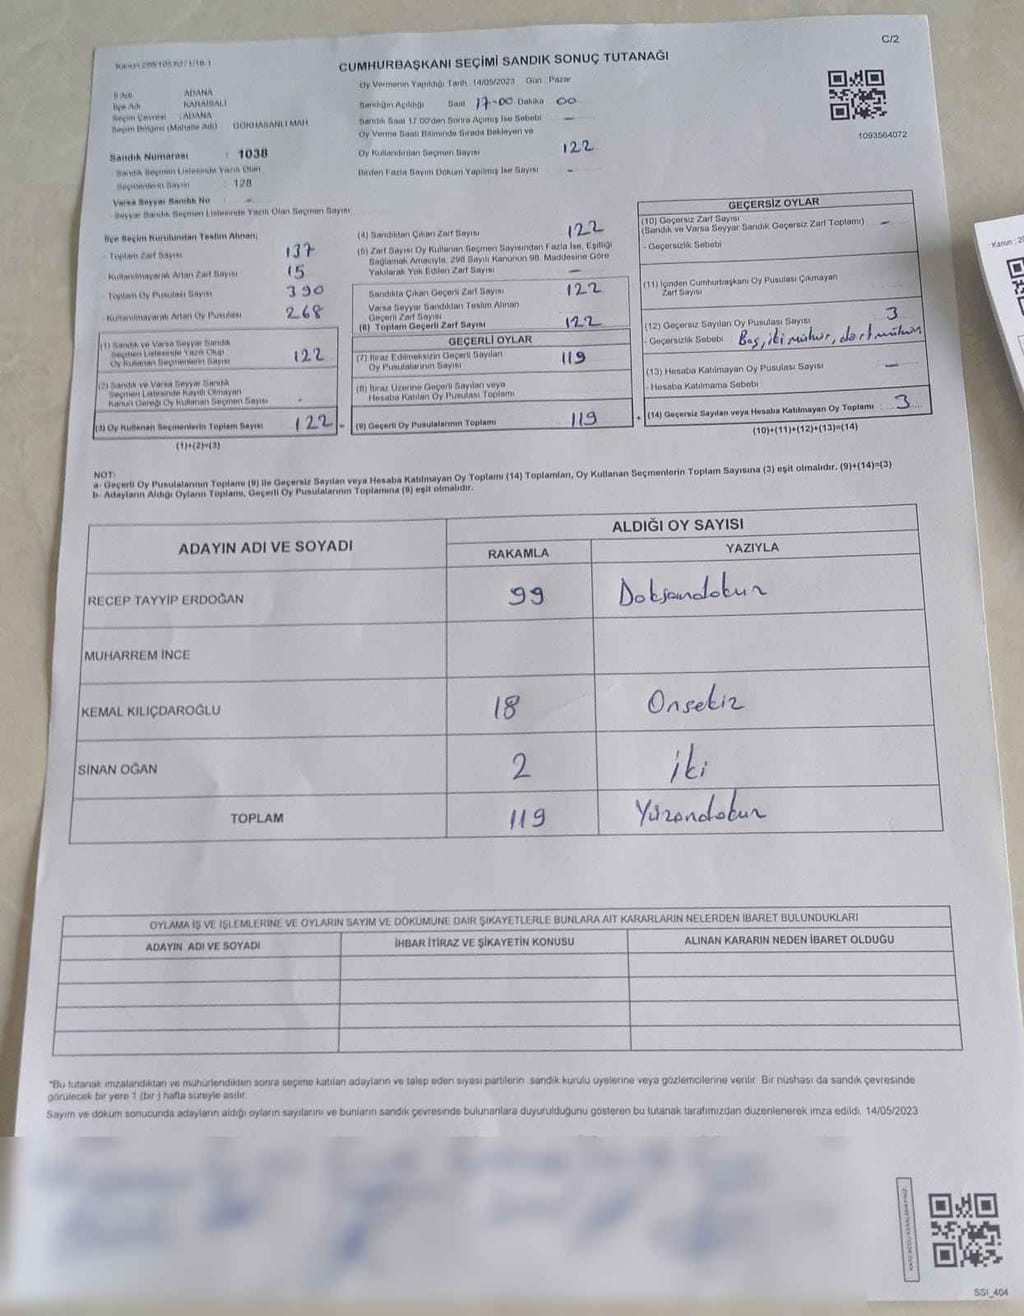 C/2
CUMHURBAŞKANI SEÇİMİ SANDIK SONUÇ TUTANAĞI
1093564072
İl Adı : ADANA
İlçe Adı : KARAİSALI
Seçim Çevresi : ADANA
Seçim Bölgesi (Mahalle Adı) : GÖKHASANLI MAH
Sandık Numarası : 1038
Sandık Seçmen Listesinde Yazılı Olan
Seçmenlerin Sayısı : 128
Varsa Seyyar Sandık No : -
Seyyar Sandık Seçmen Listesinde Yazılı Olan Seçmen Sayısı
Oy Vermenin Yapıldığı Tarih : 14/05/2023 Gün : Pazar
Sandığın Açıldığı Saat 17-00 Dakika 00
Sandık Saat 17:00'den Sonra Açılmış İse Sebebi : —
Oy Verme Saati Bitiminde Sırada Bekleyen ve
Oy Kullandırılan Seçmen Sayısı 122
Birden Fazla Sayım Döküm Yapılmış İse Sayısı : —
İlçe Seçim Kurulundan Teslim Alınan;
- Toplam Zarf Sayısı : 137
- Kullanılmayarak Artan Zarf Sayısı : 15
- Toplam Oy Pusulası Sayısı : 390
- Kullanılmayarak Artan Oy Pusulası : 268
(1) Sandık ve Varsa Seyyar Sandık
Seçmen Listesinde Yazılı Olup
Oy Kullanan Seçmenlerin Sayısı : 122
(2) Sandık ve Varsa Seyyar Sandık
Seçmen Listesinde Kayıtlı Olmayan
Kanun Gereği Oy Kullanan Seçmen Sayısı : -
(3) Oy Kullanan Seçmenlerin Toplam Sayısı : 122 =
(1)+(2)=(3)
(4) Sandıktan Çıkan Zarf Sayısı : 122
(5) Zarf Sayısı Oy Kullanan Seçmen Sayısından Fazla İse, Eşitliği
Sağlamak Amacıyla, 298 Sayılı Kanunun 98. Maddesine Göre
Yakılarak Yok Edilen Zarf Sayısı : —
Sandıkta Çıkan Geçerli Zarf Sayısı : 122
Varsa Seyyar Sandıktan Teslim Alınan
Geçerli Zarf Sayısı
(6) Toplam Geçerli Zarf Sayısı : 122
GEÇERLİ OYLAR
(7) İtiraz Edilmeksizin Geçerli Sayılan
Oy Pusulalarının Sayısı : 119
(8) İtiraz Üzerine Geçerli Sayılan veya
Hesaba Katılan Oy Pusulası Toplamı
(9) Geçerli Oy Pusulalarının Toplamı : 119 +
GEÇERSİZ OYLAR
(10) Geçersiz Zarf Sayısı
(Sandık ve Varsa Seyyar Sandık Geçersiz Zarf Toplamı) : —
- Geçersizlik Sebebi
(11) İçinden Cumhurbaşkanı Oy Pusulası Çıkmayan
Zarf Sayısı
(12) Geçersiz Sayılan Oy Pusulası Sayısı : 3
- Geçersizlik Sebebi : Boş, iki mühür, dört mühür
(13) Hesaba Katılmayan Oy Pusulası Sayısı : —
- Hesaba Katılmama Sebebi
(14) Geçersiz Sayılan veya Hesaba Katılmayan Oy Toplamı : 3
(10)+(11)+(12)+(13)=(14)
NOT:
a- Geçerli Oy Pusulalarının Toplamı (9) ile Geçersiz Sayılan veya Hesaba Katılmayan Oy Toplamı (14) Toplamları, Oy Kullanan Seçmenlerin Toplam Sayısına (3) eşit olmalıdır. (9)+(14)=(3)
b- Adayların Aldığı Oyların Toplamı, Geçerli Oy Pusulalarının Toplamına (9) eşit olmalıdır.
ADAYIN ADI VE SOYADI
ALDIĞI OY SAYISI
RAKAMLA YAZIYLA
RECEP TAYYİP ERDOĞAN 99 Doksandokuz
MUHARREM İNCE
KEMAL KILIÇDAROĞLU 18 Onsekiz
SİNAN OĞAN 2 iki
TOPLAM 119 Yüzondokuz
OYLAMA İŞ VE İŞLEMLERİNE VE OYLARIN SAYIM VE DÖKÜMÜNE DAİR ŞİKAYETLERLE BUNLARA AİT KARARLARIN NELERDEN İBARET BULUNDUKLARI
ADAYIN ADI VE SOYADI İHBAR İTİRAZ VE ŞİKAYETİN KONUSU ALINAN KARARIN NEDEN İBARET OLDUĞU
"Bu tutanak imzalandıktan ve mühürlendikten sonra seçime katılan adayların ve talep eden siyasi partilerin sandık kurulu üyelerine veya gözlemcilerine verilir. Bir nüshası da sandık çevresinde
görülecek bir yere 1 (bir) hafta süreyle asılır.
Sayım ve döküm sonucunda adayların aldığı oyların sayılarını ve bunların sandık çevresinde bulunanlara duyurulduğunu gösteren bu tutanak tarafımızdan düzenlenerek imza edildi. 14/05/2023
SSI_404